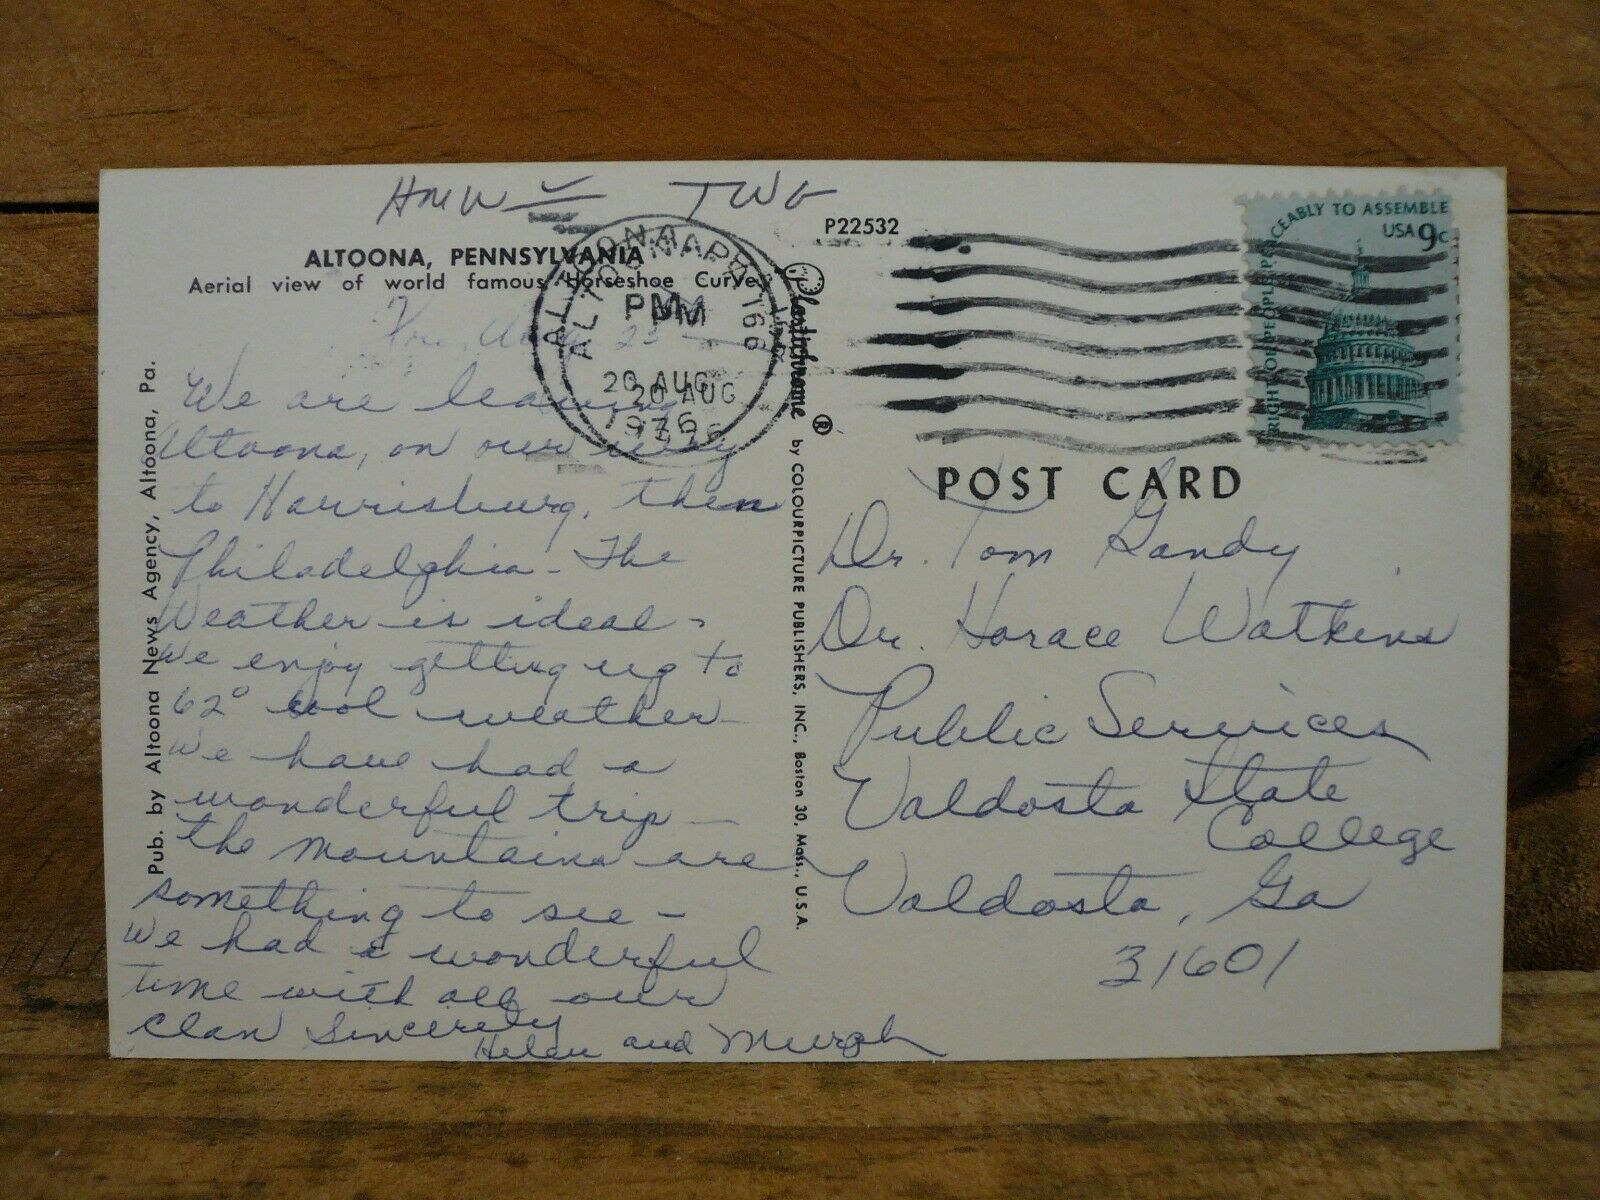 HMW TWG
P22532
ALTOONA, PENNSYLVANIA
Aerial view of world famous Horseshoe Curve
ALTOONA, PA 166
PM
20 AUG
1976
RIGHT OF PEOPLE PEACEABLY TO ASSEMBLE
USA 9c
We are leaving
Altoona, on our way
to Harrisburg, then
Philadelphia - The
Weather is ideal -
We enjoy getting up to
62° cool weather -
We have had a
wonderful trip -
the mountains are
something to see -
We had a wonderful
time with all our
clan Sincerely
Helen and Murph
Pub. by Altoona News Agency, Altoona, Pa.
Plastichrome ® by COLOURPICTURE PUBLISHERS, INC., Boston 30, Mass., U.S.A.
POST CARD
Dr. Tom Gandy
Dr. Horace Watkins
Public Services
Valdosta State
College
Valdosta, Ga
31601